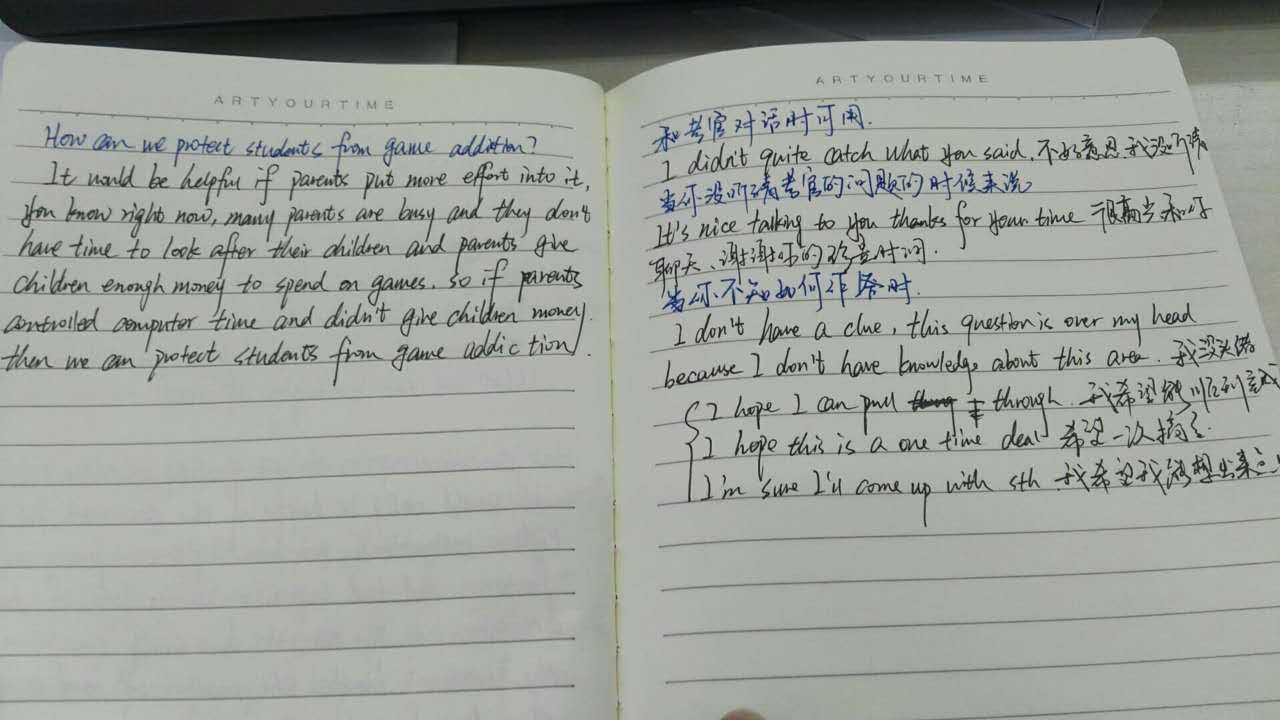 ARTYOURTIME
How can we protect students from game addiction?
It would be helpful if parents put more effort into it,
you know right now, many parents are busy and they don't
have time to look after their children and parents give
children enough money to spend on games. so if parents
controlled computor time and didn't give children money.
then we can protect students from game addiction.
ARTYOURTIME
和考官对话时可用.
I didn't quite catch what you said. 不好意思我没听清
当你没听清考官的问题的时候来说
It's nice talking to you thanks for your time 很高兴和你
聊天、谢谢你的宝贵时间.
当你不知如何作答时.
I don't have a clue, this question is over my head
because I don't have knowledge about this area. 我没头绪
I hope I can pull through. 我希望能顺利完成
I hope this is a one time deal 希望一次搞定.
I'm sure I'll come up with sth 我希望我能想出来点